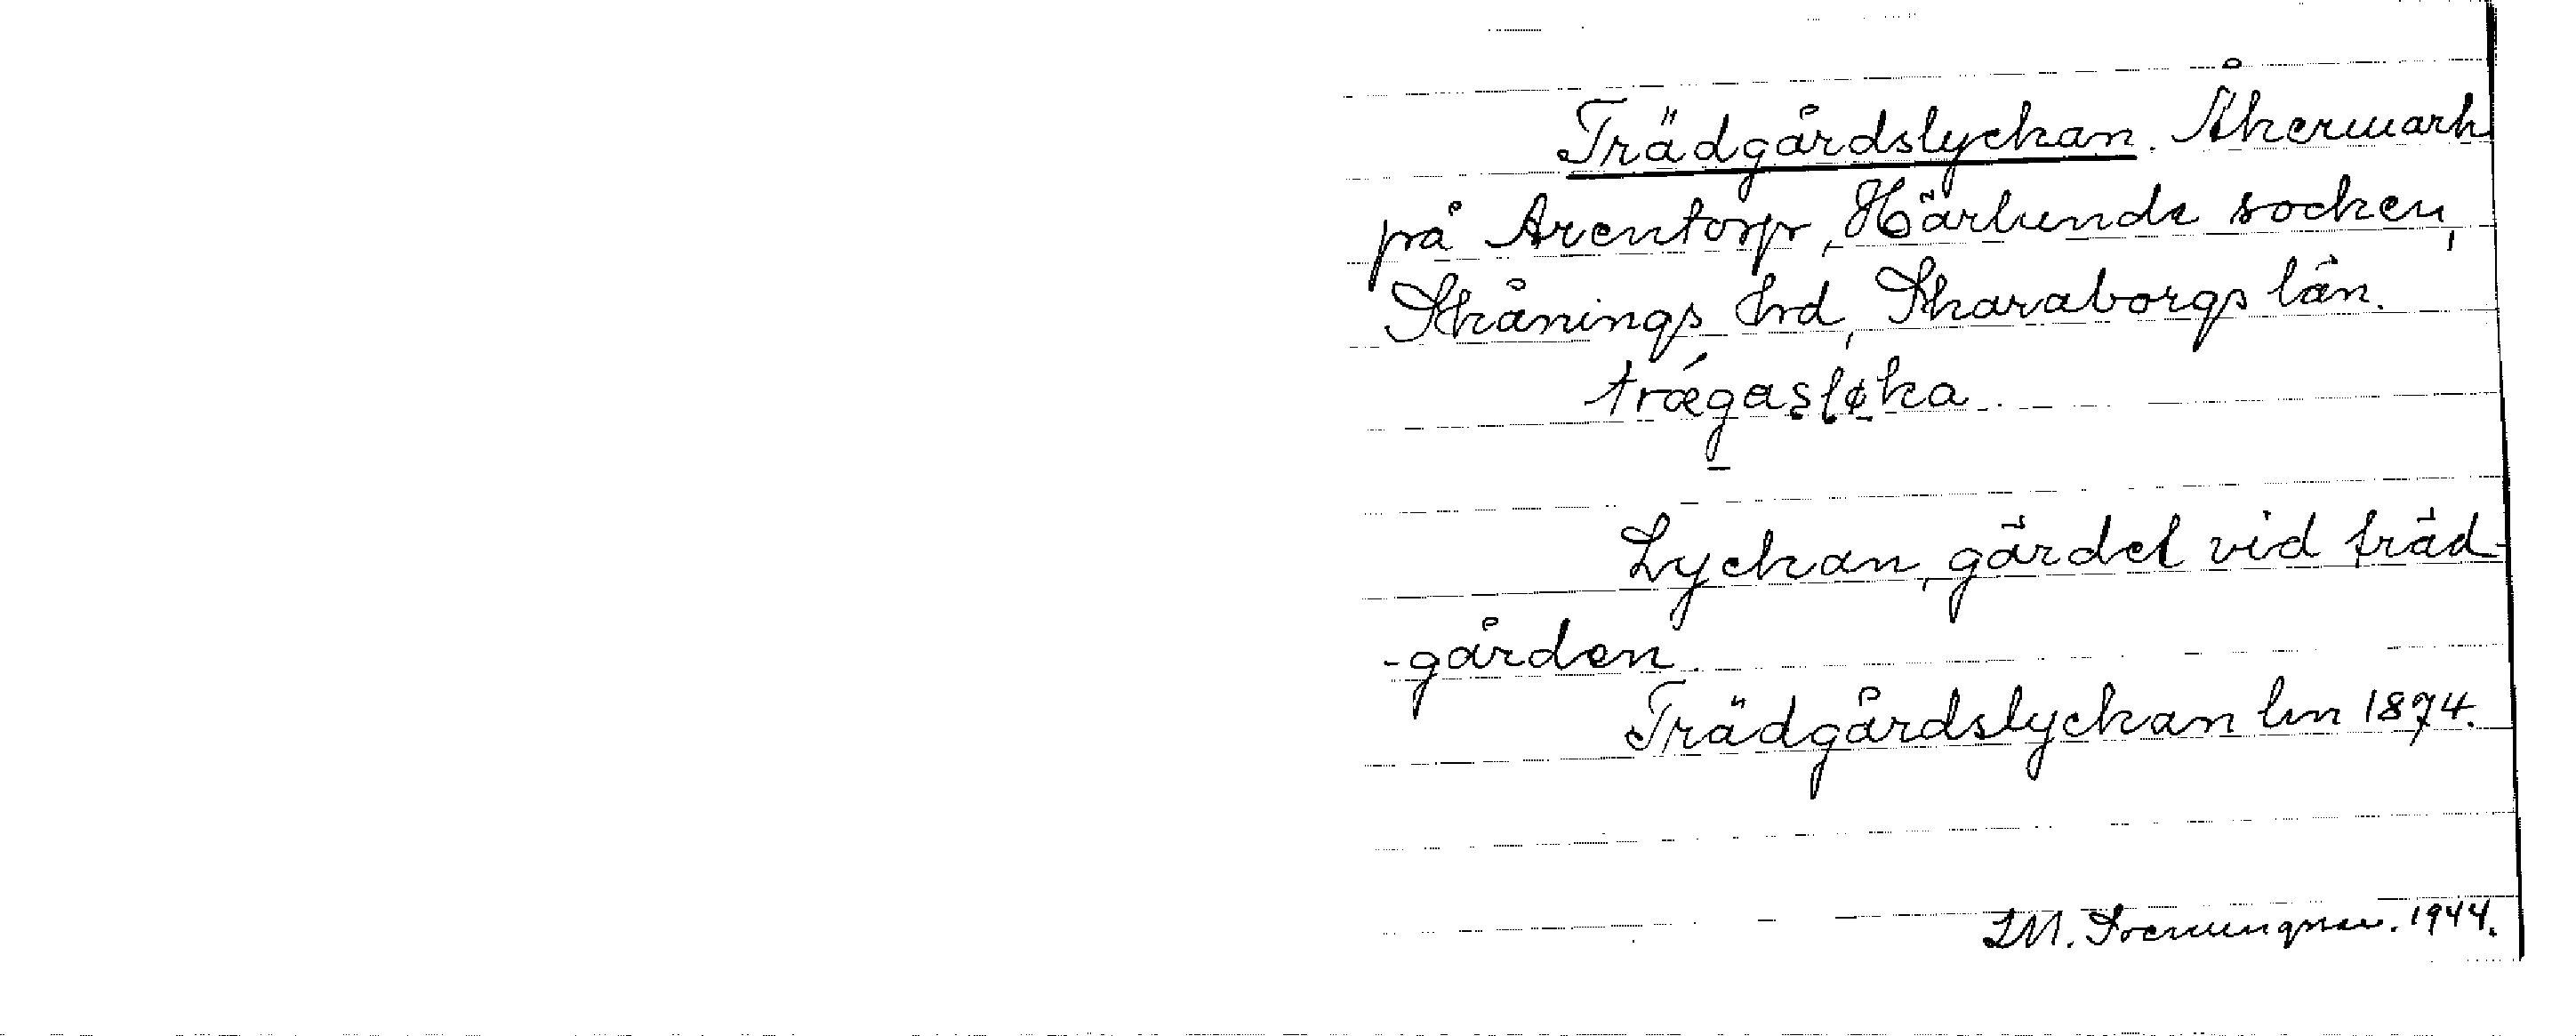 Trädgårdslyckan. Åkermark
på Arentorp, Härlunda socken,
Skånings hd, Skaraborgs län.
trǽgasløka
Lyckan, gärdet vid träd-
-gården.
Trädgårdslyckan lm 1874.
1944.